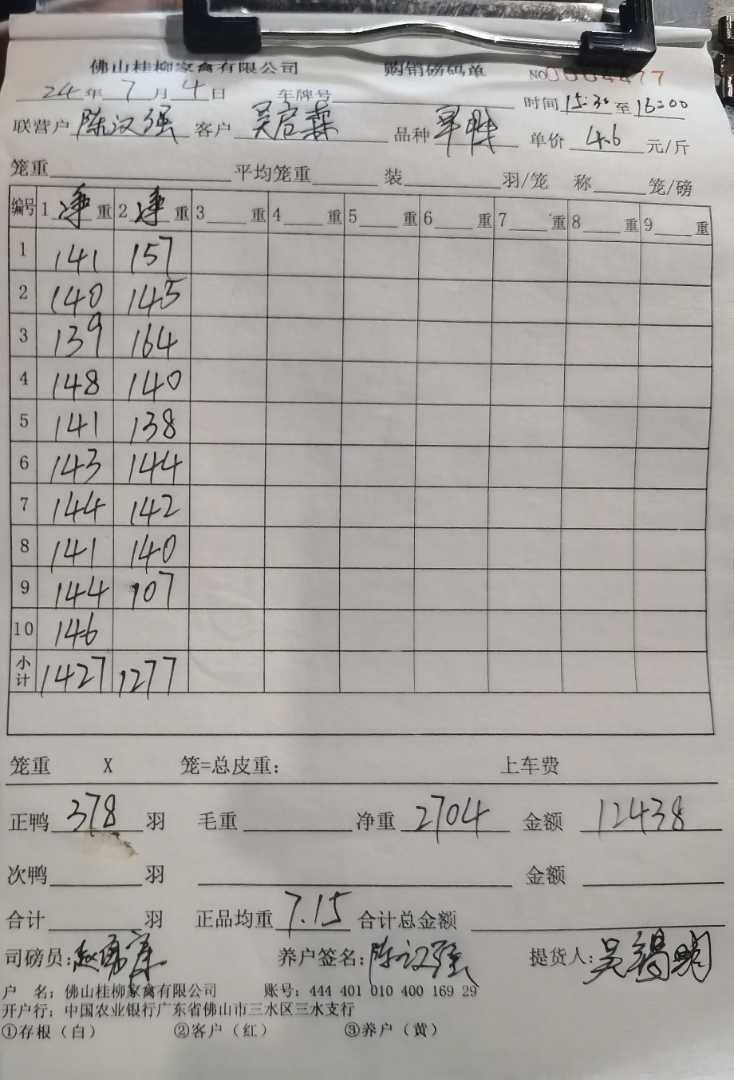 佛山桂柳家禽有限公司 购销磅码单 NO 0004477
24年 7月 4日 车牌号 时间 15:30 至 16:00
联营户 陈汉强 客户 吴启森 品种 单价 4.6 元/斤
笼重 平均笼重 装 羽/笼 称 笼/磅
编号 1 净 重 2 净 重 3 重 4 重 5 重 6 重 7 重 8 重 9 重
1 141 157
2 140 145
3 139 164
4 148 140
5 141 138
6 143 144
7 144 142
8 141 140
9 144 107
10 146
小计 1427 1277
笼重 X 笼=总皮重: 上车费
正鸭 378 羽 毛重 净重 2704 金额 12438
次鸭 羽 金额
合计 羽 正品均重 7.15 合计总金额
司磅员: 养户签名: 陈汉强 提货人: 吴锡明
户 名: 佛山桂柳家禽有限公司 账号: 444 401 010 400 169 29
开户行: 中国农业银行广东省佛山市三水区三水支行
①存根(白) ②客户(红) ③养户(黄)